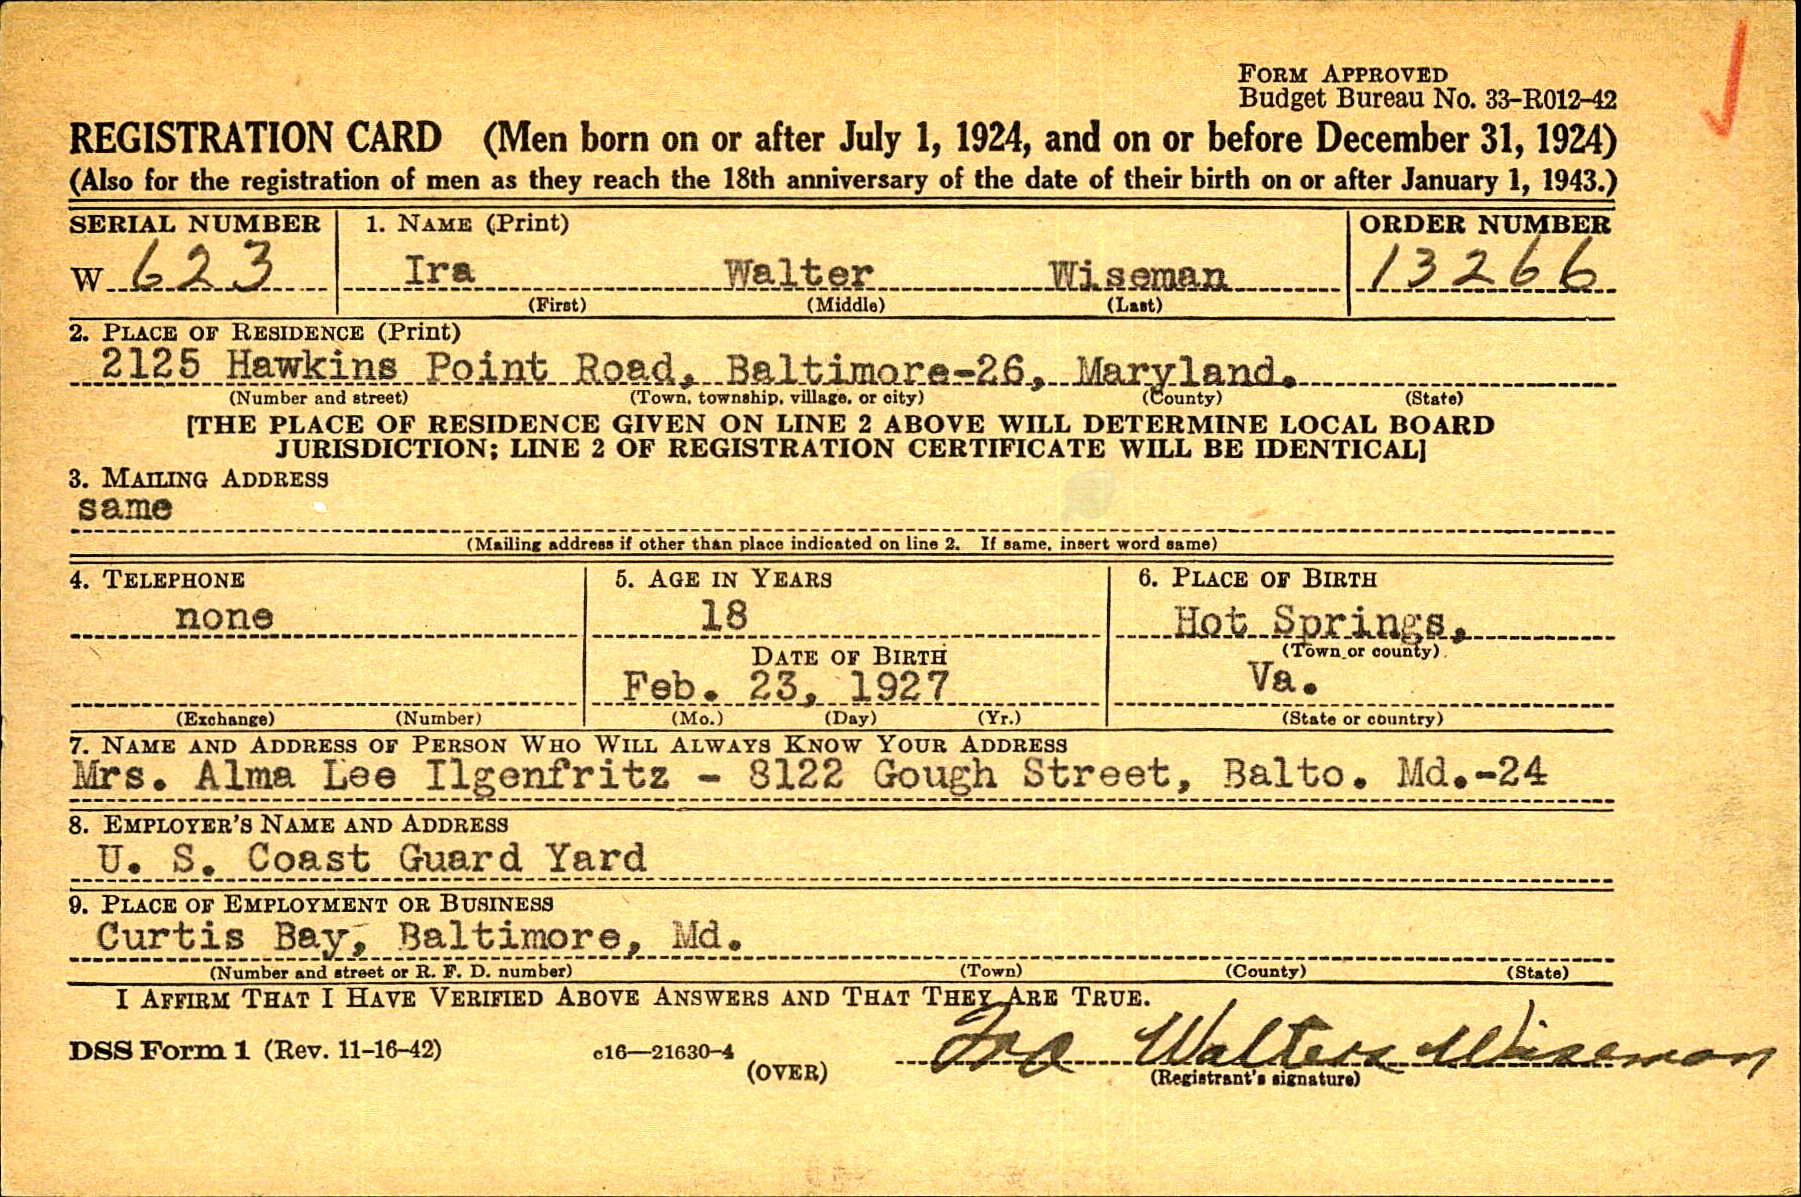 FORM APPROVED
Budget Bureau No. 33-R012-42
REGISTRATION CARD (Men born on or after July 1, 1924, and on or before December 31, 1924)
(Also for the registration of men as they reach the 18th anniversary of the date of their birth on or after January 1, 1943.)
SERIAL NUMBER 1. NAME (Print) ORDER NUMBER
W 623 Ira Walter Wiseman 13266
(First) (Middle) (Last)
2. PLACE OF RESIDENCE (Print)
2125 Hawkins Point Road, Baltimore-26, Maryland.
(Number and street) (Town, township, village, or city) (County) (State)
[THE PLACE OF RESIDENCE GIVEN ON LINE 2 ABOVE WILL DETERMINE LOCAL BOARD
JURISDICTION; LINE 2 OF REGISTRATION CERTIFICATE WILL BE IDENTICAL]
3. MAILING ADDRESS
same
(Mailing address if other than place indicated on line 2. If same, insert word same)
4. TELEPHONE 5. AGE IN YEARS 6. PLACE OF BIRTH
none 18 Hot Springs,
(Town or county)
DATE OF BIRTH
Feb. 23, 1927 Va.
(Exchange) (Number) (Mo.) (Day) (Yr.) (State or country)
7. NAME AND ADDRESS OF PERSON WHO WILL ALWAYS KNOW YOUR ADDRESS
Mrs. Alma Lee Ilgenfritz - 8122 Gough Street, Balto. Md.-24
8. EMPLOYER'S NAME AND ADDRESS
U. S. Coast Guard Yard
9. PLACE OF EMPLOYMENT OR BUSINESS
Curtis Bay, Baltimore, Md.
(Number and street or R. F. D. number) (Town) (County) (State)
I AFFIRM THAT I HAVE VERIFIED ABOVE ANSWERS AND THAT THEY ARE TRUE.
DSS Form 1 (Rev. 11-16-42) c16—21630-4 (OVER) Ira Walter Wiseman
(Registrant's signature)